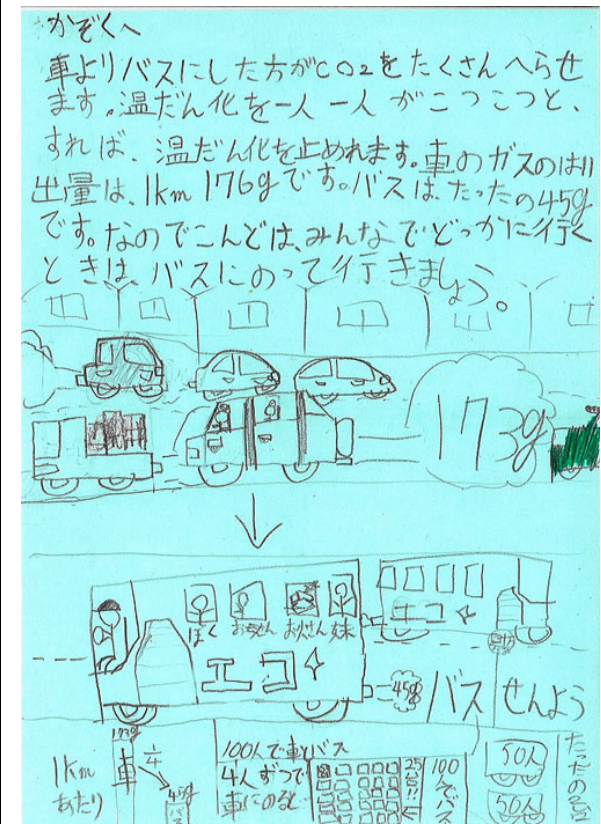 かぞくへ
車よりバスにした方がCO2をたくさんへらせ
ます。温だん化を一人一人がこつこつと、
すれば、温だん化を止めれます。車のガスのはい
出量は、1km 176gです。バスは、たったの45g
です。なのでこんどは、みんなでどっかに行く
ときは、バスにのって行きましょう。
173g
ぼく お母さん お父さん 妹
エコ
エコ
45g
バス せんよう
173g
1km
あたり
車
1/4
45g
バス
100人で車とバス
4人ずつで
車にのると
25台!!
100人でバス
50人
50人
たったの2台